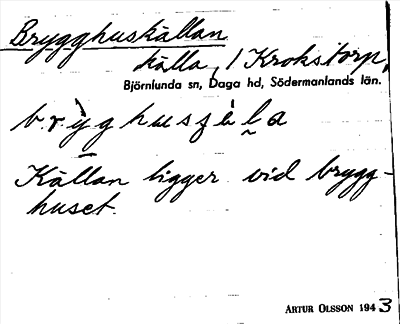 Brygghuskällan
källa, 1 Krokstorp,
Björnlunda sn, Daga hd, Södermanlands län.
Källan ligger vid brygg-
huset.
ARTUR OLSSON 1943